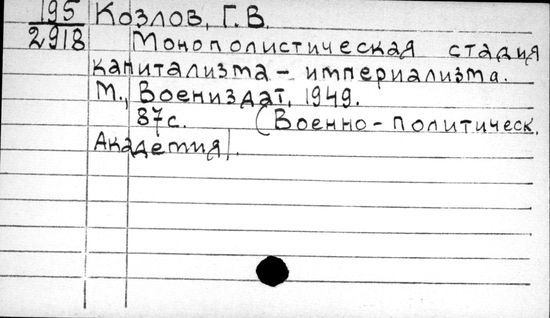 195 Козлов, Г.В.
2918 Монополистическая стадия
капитализма – империализма.
М., Воениздат, 1949.
87с. (Военно-политическ.
Академия).